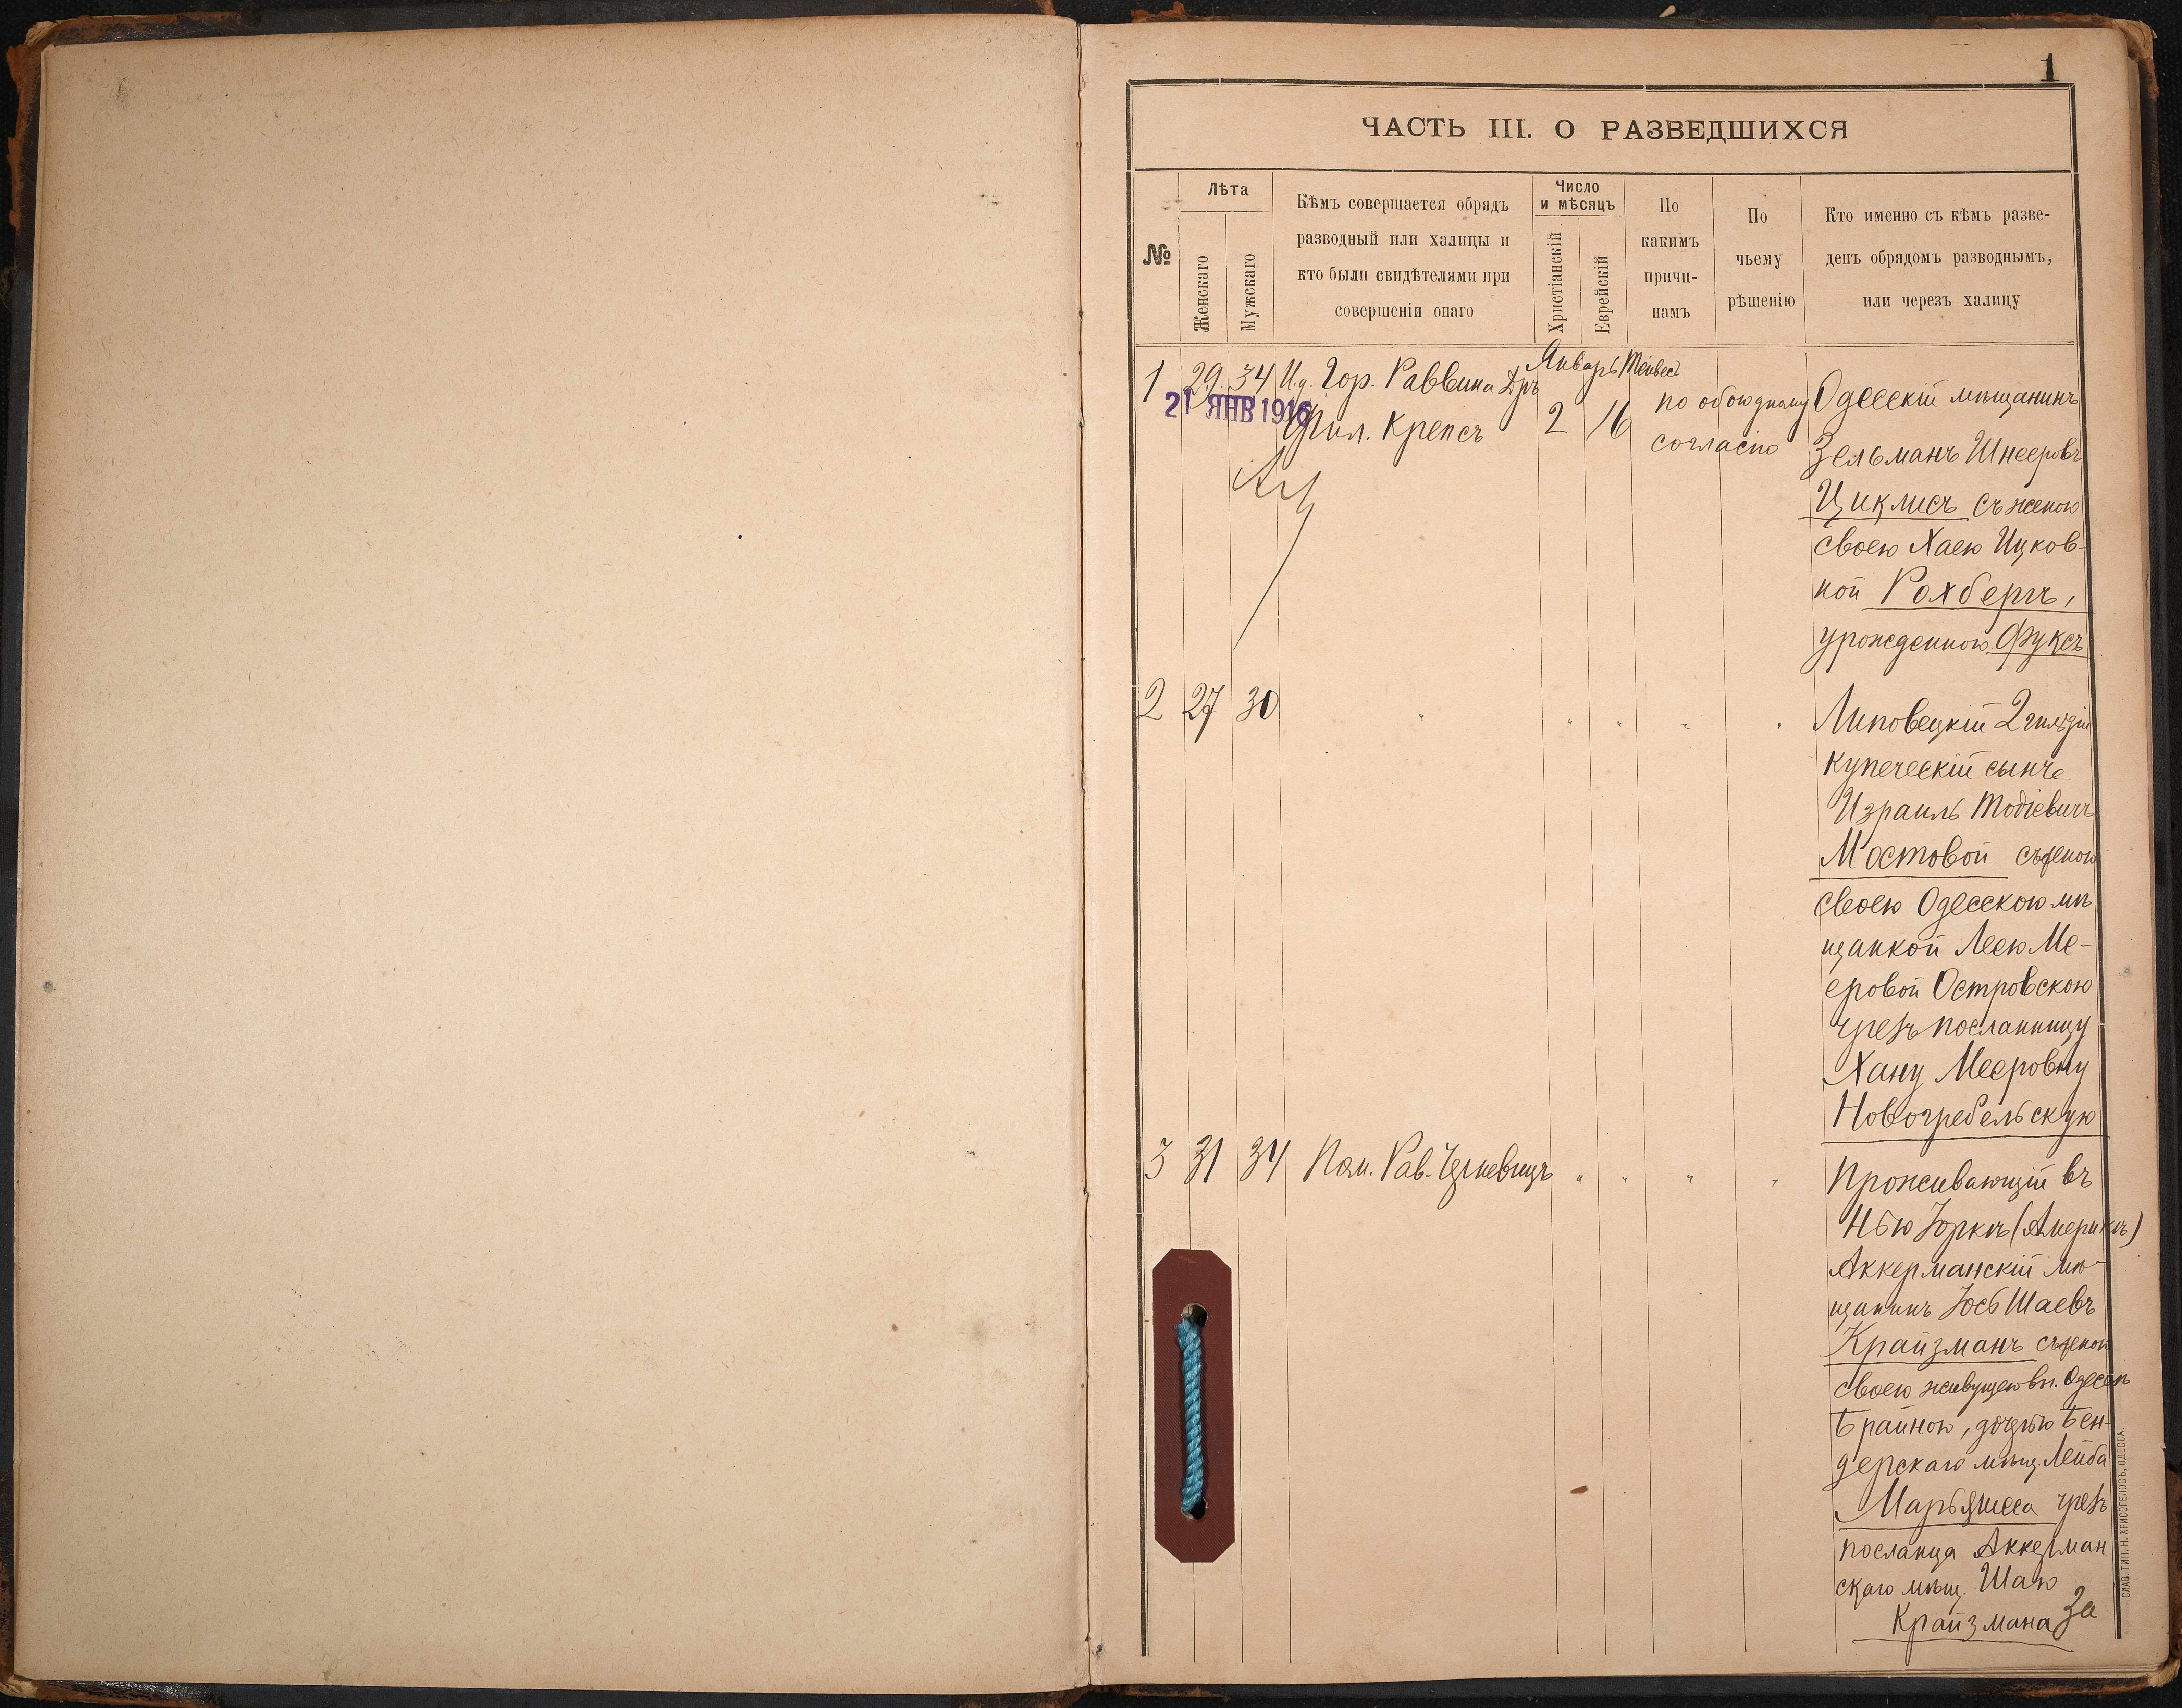 1
ЧАСТЬ III. О РАЗВЕДШИХСЯ
№
Лѣта
Женскаго
Мужскаго
Кѣмъ совершается обрядъ
разводный или халицы и
кто были свидѣтелями при
совершеніи онаго
Число
и мѣсяцъ
Христіанскій
Еврейскій
По
какимъ
причи-
намъ
По
чьему
рѣшенію
Кто именно съ кѣмъ разве-
денъ обрядомъ разводнымъ,
или черезъ халицу
1
29
34
И.д. Гор. Раввина Дръ
Фил. Крепсъ
Январь
2
Тейвес
16
по обоюдному
согласію
Одесскій мѣщанинъ
Зельманъ Шнееровъ
Циклисъ съ женою
своею Хаею Ицков-
ной Рохбергъ,
урожденною Фуксъ
21 ЯНВ 1916
2
27
30
" " " " "
Липовецкій 2 гильдіи
купеческій сынъ
Израиль Тодіевичъ
Мостовой съ женою
своею Одесскою мѣ
щанкой Леею Ме-
еровой Островскою
чрезъ посланницу
Хану Мееровну
Новогребельскую
3
31
34
Пом. Рав.
" " " "
Проживающій въ
Нью Іоркѣ (Америкѣ)
Аккерманскій мѣ-
щанинъ Іось Шаевъ
Крайзманъ съ женой
своею живущею въ г. Одессѣ
Браиною, дочерью Бен-
дерскаго мѣщ. Лейба
чрезъ
посланца Аккерман
скаго мѣщ. Шаю
Крайзмана За
СЛАВ. ТИП. Н. ХРИСОГЕЛОСЪ, ОДЕССА.